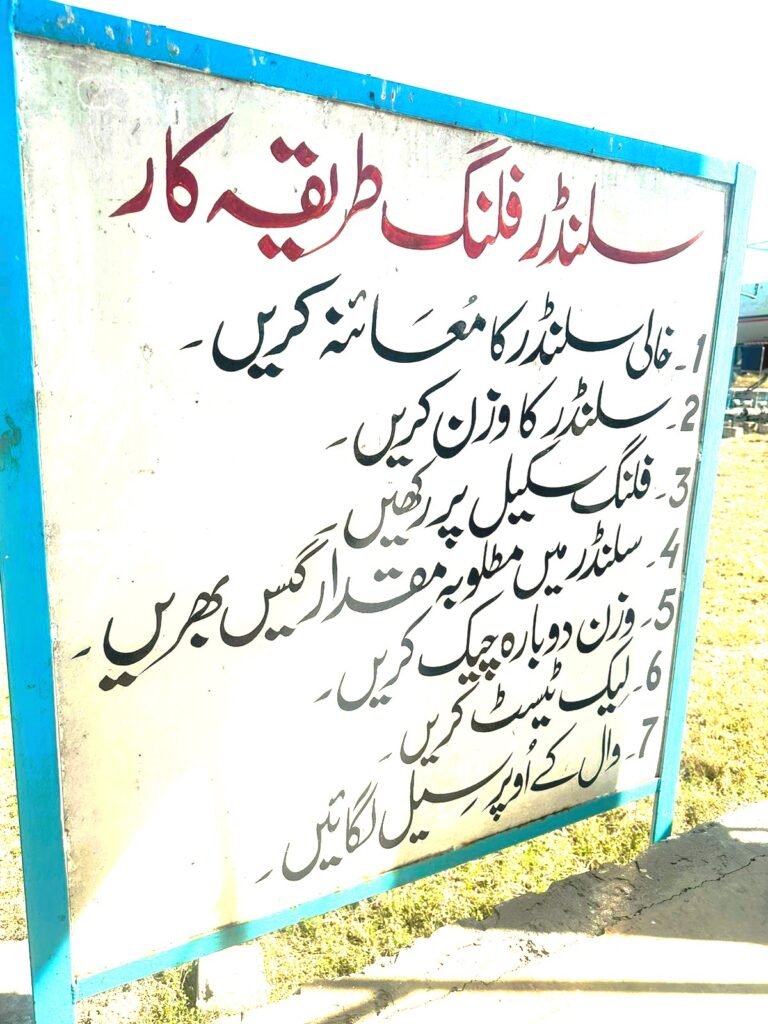 سلنڈر فلنگ طریقہ کار
1۔ خالی سلنڈر کا مُعَائنہ کریں۔
2۔ سلنڈر کا وزن کریں۔
3۔ فلنگ سکیل پر رکھیں۔
4۔ سلنڈر میں مطلوبہ مقدار گیس بھریں۔
5۔ وزن دوبارہ چیک کریں۔
6۔ لیک ٹیسٹ کریں۔
7۔ وال کے اُوپر سیل لگائیں۔